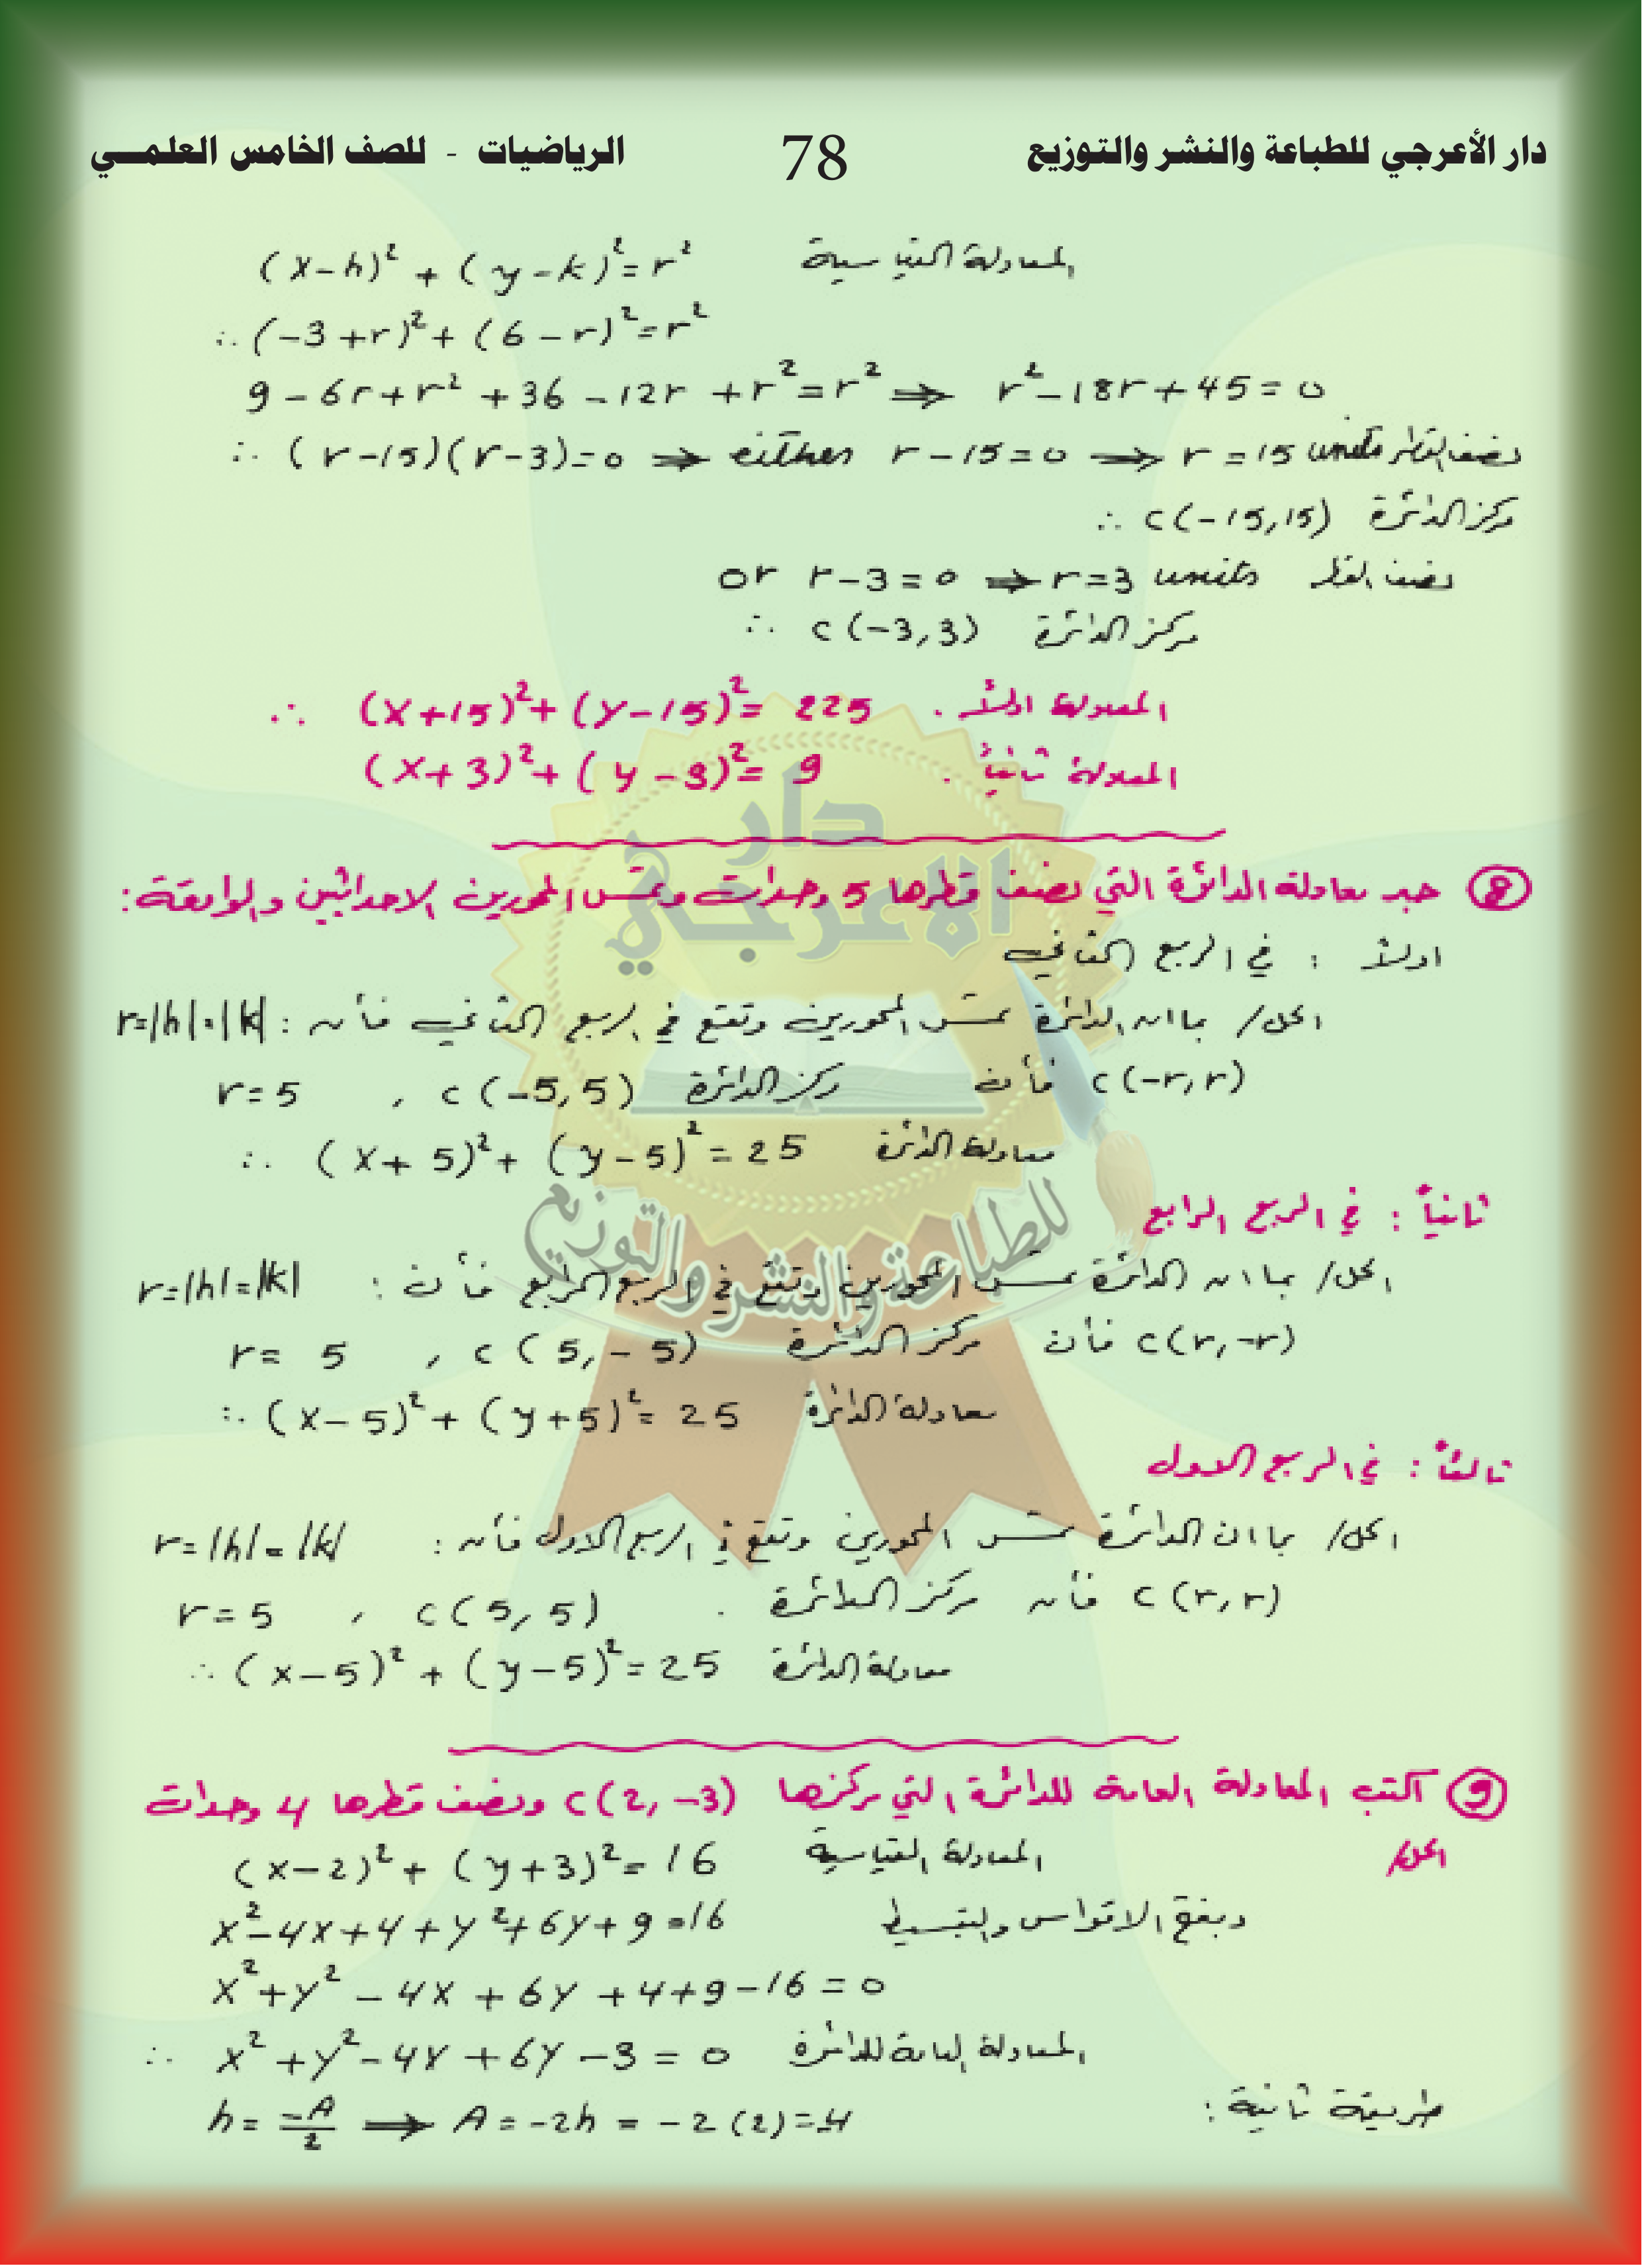 دار الأعرجي للطباعة والنشر والتوزيع 78 الرياضيات - للصف الخامس العلمي
المعادلة القياسية (x-h)² + (y-k)² = r²
∴ (-3+r)² + (6-r)² = r²
9 - 6r + r² + 36 - 12r + r² = r² ⇒ r² - 18r + 45 = 0
∴ (r-15)(r-3) = 0 ⇒ either r-15 = 0 ⇒ r = 15 units نصف القطر
مركز الدائرة C(-15,15) ∴
or r-3 = 0 ⇒ r = 3 units نصف القطر
∴ C(-3,3) مركز الدائرة
∴ (x+15)² + (y-15)² = 225 . المعادلة اولاً
(x+3)² + (y-3)² = 9 . المعادلة ثانياً
⑧ جد معادلة الدائرة التي نصف قطرها 5 وحدات وتمس المحورين الاحداثيين والواقعة :
اولاً : في الربع الثاني
الحل/ بما ان الدائرة تمس المحورين وتقع في الربع الثاني فأن : r=|h|=|k|
C(-r,r) فأن مركز الدائرة C(-5,5) , r=5
∴ (x+5)² + (y-5)² = 25 معادلة الدائرة
ثانياً : في الربع الرابع
الحل/ بما ان الدائرة تمس المحورين وتقع في الربع الرابع فأن : r=|h|=|k|
C(r,-r) فأن مركز الدائرة C(5,-5) , r= 5
∴ (x-5)² + (y+5)² = 25 معادلة الدائرة
ثالثاً : في الربع الاول
الحل/ بما ان الدائرة تمس المحورين وتقع في الربع الاول فأن : r=|h|=|k|
C(r,r) فأن مركز الدائرة . C(5,5) , r=5
∴ (x-5)² + (y-5)² = 25 معادلة الدائرة
⑨ اكتب المعادلة العامة للدائرة التي مركزها C(2,-3) ونصف قطرها 4 وحدات
الحل/ المعادلة القياسية (x-2)² + (y+3)² = 16
وبفتح الاقواس والتبسيط x² - 4x + 4 + y² + 6y + 9 = 16
x² + y² - 4x + 6y + 4 + 9 - 16 = 0
∴ x² + y² - 4x + 6y - 3 = 0 المعادلة العامة للدائرة
طريقة ثانية : h = -A/2 ⇒ A = -2h = -2(2) = -4
دار
الاعرجي
للطباعة والنشر والتوزيع